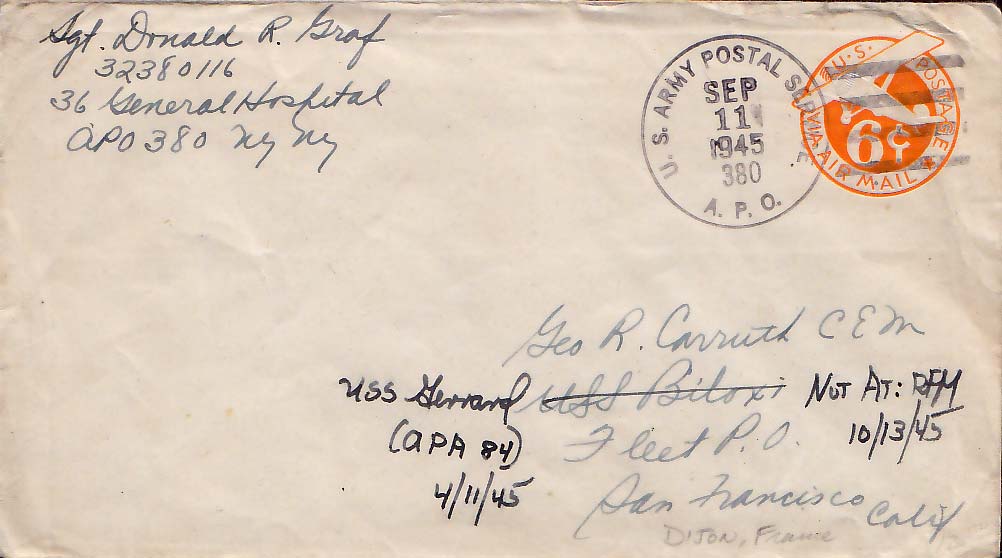 Sgt. Donald R. Graf
32380116
36 General Hospital
APO 380 NY NY
U.S. ARMY POSTAL SERVICE
SEP
11
1945
380
A.P.O.
U.S. POSTAGE
6¢
VIA AIR MAIL
Geo R. Carruth CEM
USS Biloxi
Fleet P.O.
San Francisco Calif
USS Gerrard
(APA 84)
4/11/45
NOT AT: RFM
10/13/45
DIJON, France